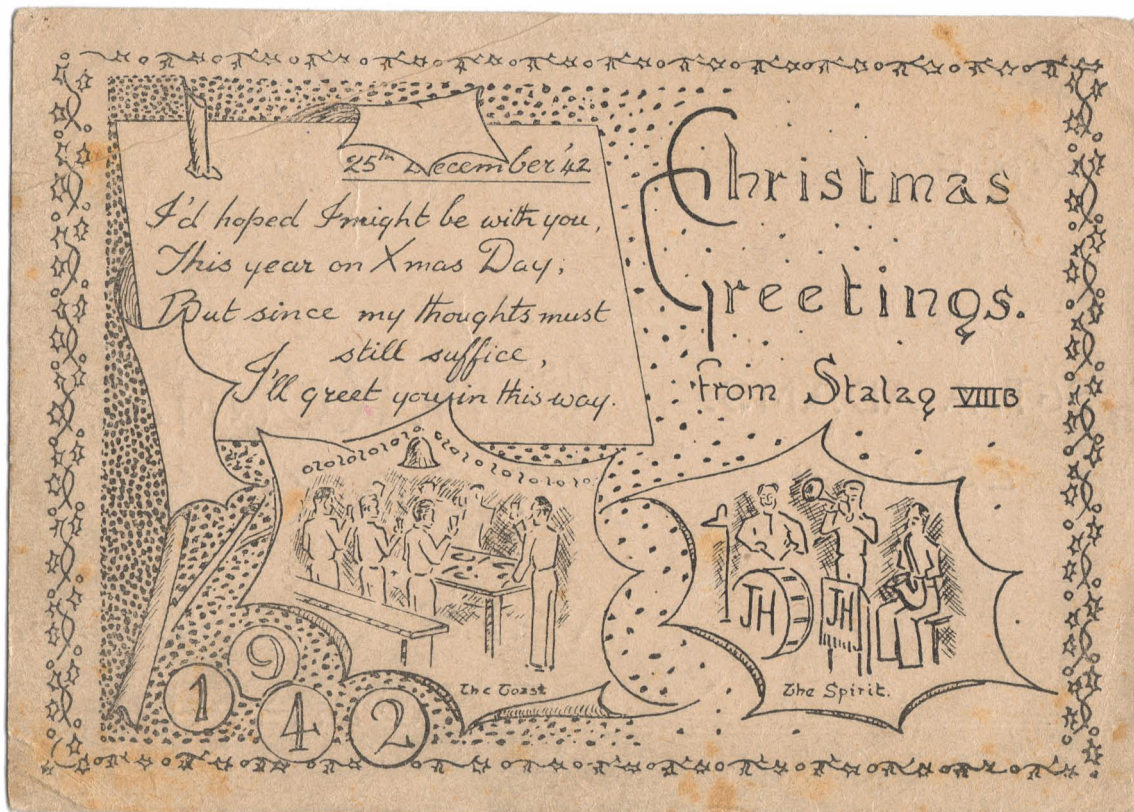 25th December '42
I'd hoped I might be with you,
This year on Xmas Day,
But since my thoughts must
still suffice,
I'll greet you in this way.
Christmas
Greetings.
from Stalag VIIIB
The Toast
JH
JH
The Spirit.
1942